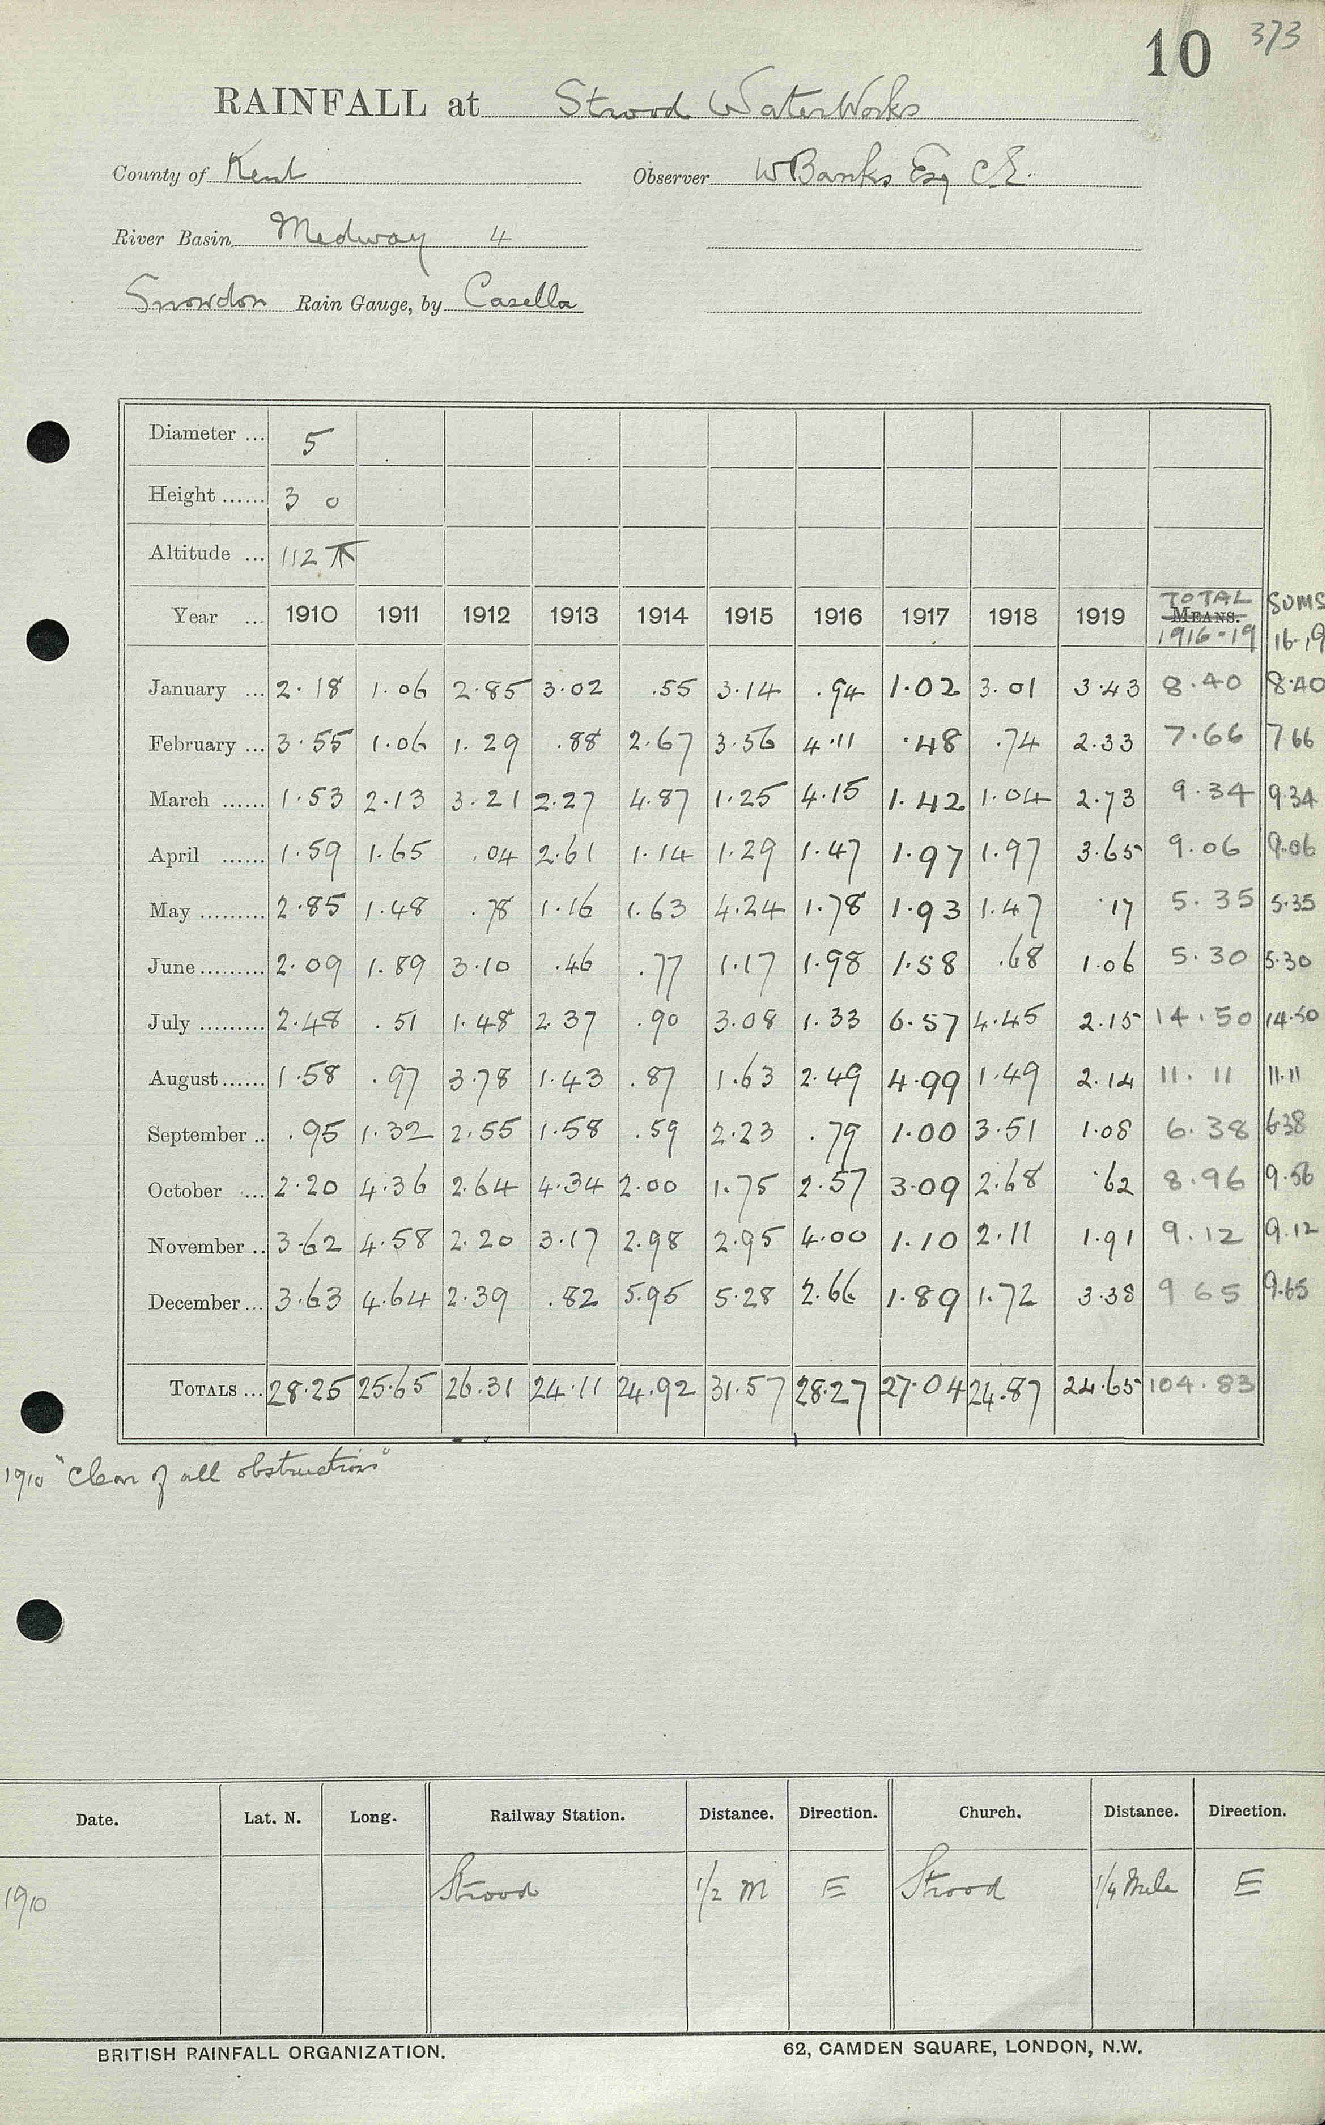 10 373
RAINFALL at Strood WaterWorks
County of Kent Observer W Banks Esq C.E.
River Basin Medway 4
Snowdon Rain Gauge, by Casella
Diameter ... 5
Height ...... 3 0
Altitude ... 112
Year ... 1910 1911 1912 1913 1914 1915 1916 1917 1918 1919 TOTAL MEANS. 1916-19 SUMS 16-19
January ... 2.18 1.06 2.85 3.02 .55 3.14 .94 1.02 3.01 3.43 8.40 8.40
February ... 3.55 1.06 1.29 .88 2.67 3.56 4.11 .48 .74 2.33 7.66 7 66
March ...... 1.53 2.13 3.21 2.27 4.87 1.25 4.15 1.42 1.04 2.73 9.34 9.34
April ...... 1.59 1.65 .04 2.61 1.14 1.29 1.47 1.97 1.97 3.65 9.06 9.06
May ......... 2.85 1.48 .78 1.16 1.63 4.24 1.78 1.93 1.47 .17 5.35 5.35
June ......... 2.09 1.89 3.10 .46 .77 1.17 1.98 1.58 .68 1.06 5.30 5.30
July ......... 2.48 .51 1.48 2 37 .90 3.08 1.33 6.57 4.45 2.15 14.50 14.50
August ...... 1.58 .97 3.78 1.43 .87 1.63 2.49 4.99 1.49 2.14 11.11 11.11
September .. .95 1.32 2.55 1.58 .59 2.23 .79 1.00 3.51 1.08 6.38 6.38
October ... 2.20 4.36 2.64 4.34 2.00 1.75 2.57 3.09 2.68 .62 8.96 9.56
November .. 3.62 4.58 2.20 3.17 2.98 2.95 4.00 1.10 2.11 1.91 9.12 9.12
December ... 3.63 4.64 2.39 .82 5.95 5.28 2.66 1.89 1.72 3.38 9 65 9.65
TOTALS ... 28.25 25.65 26.31 24.11 24.92 31.57 28.27 27.04 24.87 24.65 104.83
1910 "Clear of all obstruction"
Date. Lat. N. Long. Railway Station. Distance. Direction. Church. Distance. Direction.
1910 Strood 1/2 M E Strood 1/4 Mile E
BRITISH RAINFALL ORGANIZATION. 62, CAMDEN SQUARE, LONDON, N.W.